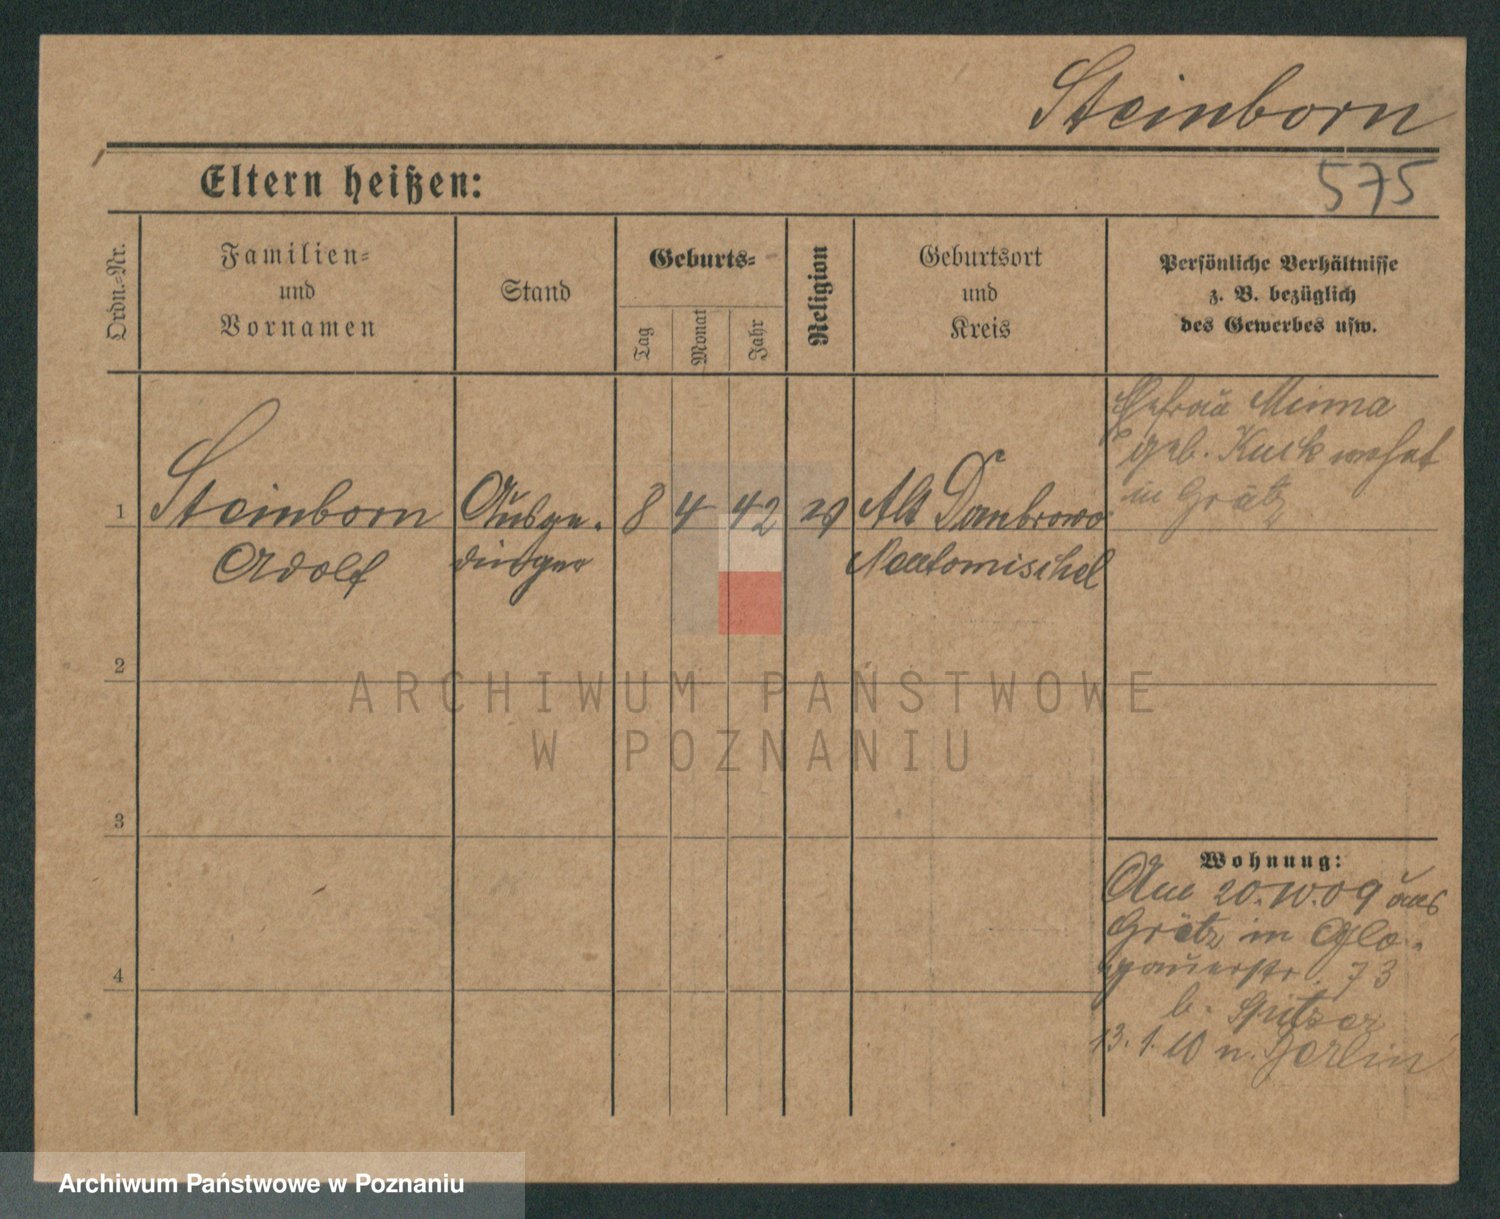 Steinborn
575
Eltern heißen:
Ordn.-Nr.
Familien-
und
Vornamen
Stand
Geburts-
Tag
Monat
Jahr
Religion
Geburtsort
und
Kreis
Persönliche Verhältnisse
z. B. bezüglich
des Gewerbes usw.
1
Steinborn
Adolf
Ausge-
dinger
8
4
42
ev
Alt Dombrowo
Neutomischel
Ehefrau Minna
geb. wohnt
in Grätz
2
3
4
Wohnung:
Am 20.10.09 aus
Grätz in Glo-
gauerstr. 73
b. Spitzer
13.1.10 n. Berlin
ARCHIWUM PAŃSTWOWE
W POZNANIU
Archiwum Państwowe w Poznaniu